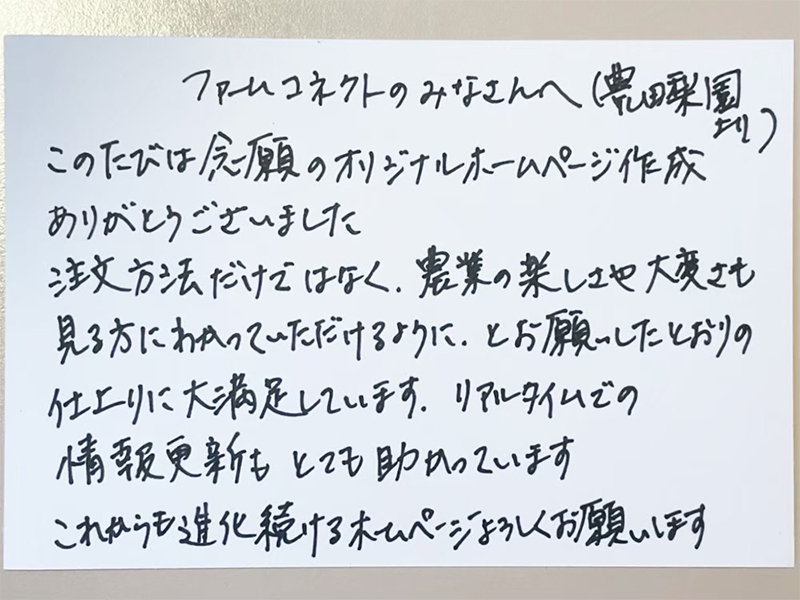 ファームコネクトのみなさんへ(豊田梨園より)
このたびは念願のオリジナルホームページ作成
ありがとうございました
注文方法だけではなく、農業の楽しさや大変さも
見る方にわかっていただけるように、とお願いしたとおりの
仕上りに大満足しています。リアルタイムでの
情報更新もとても助かっています
これからも進化続けるホームページよろしくお願いします